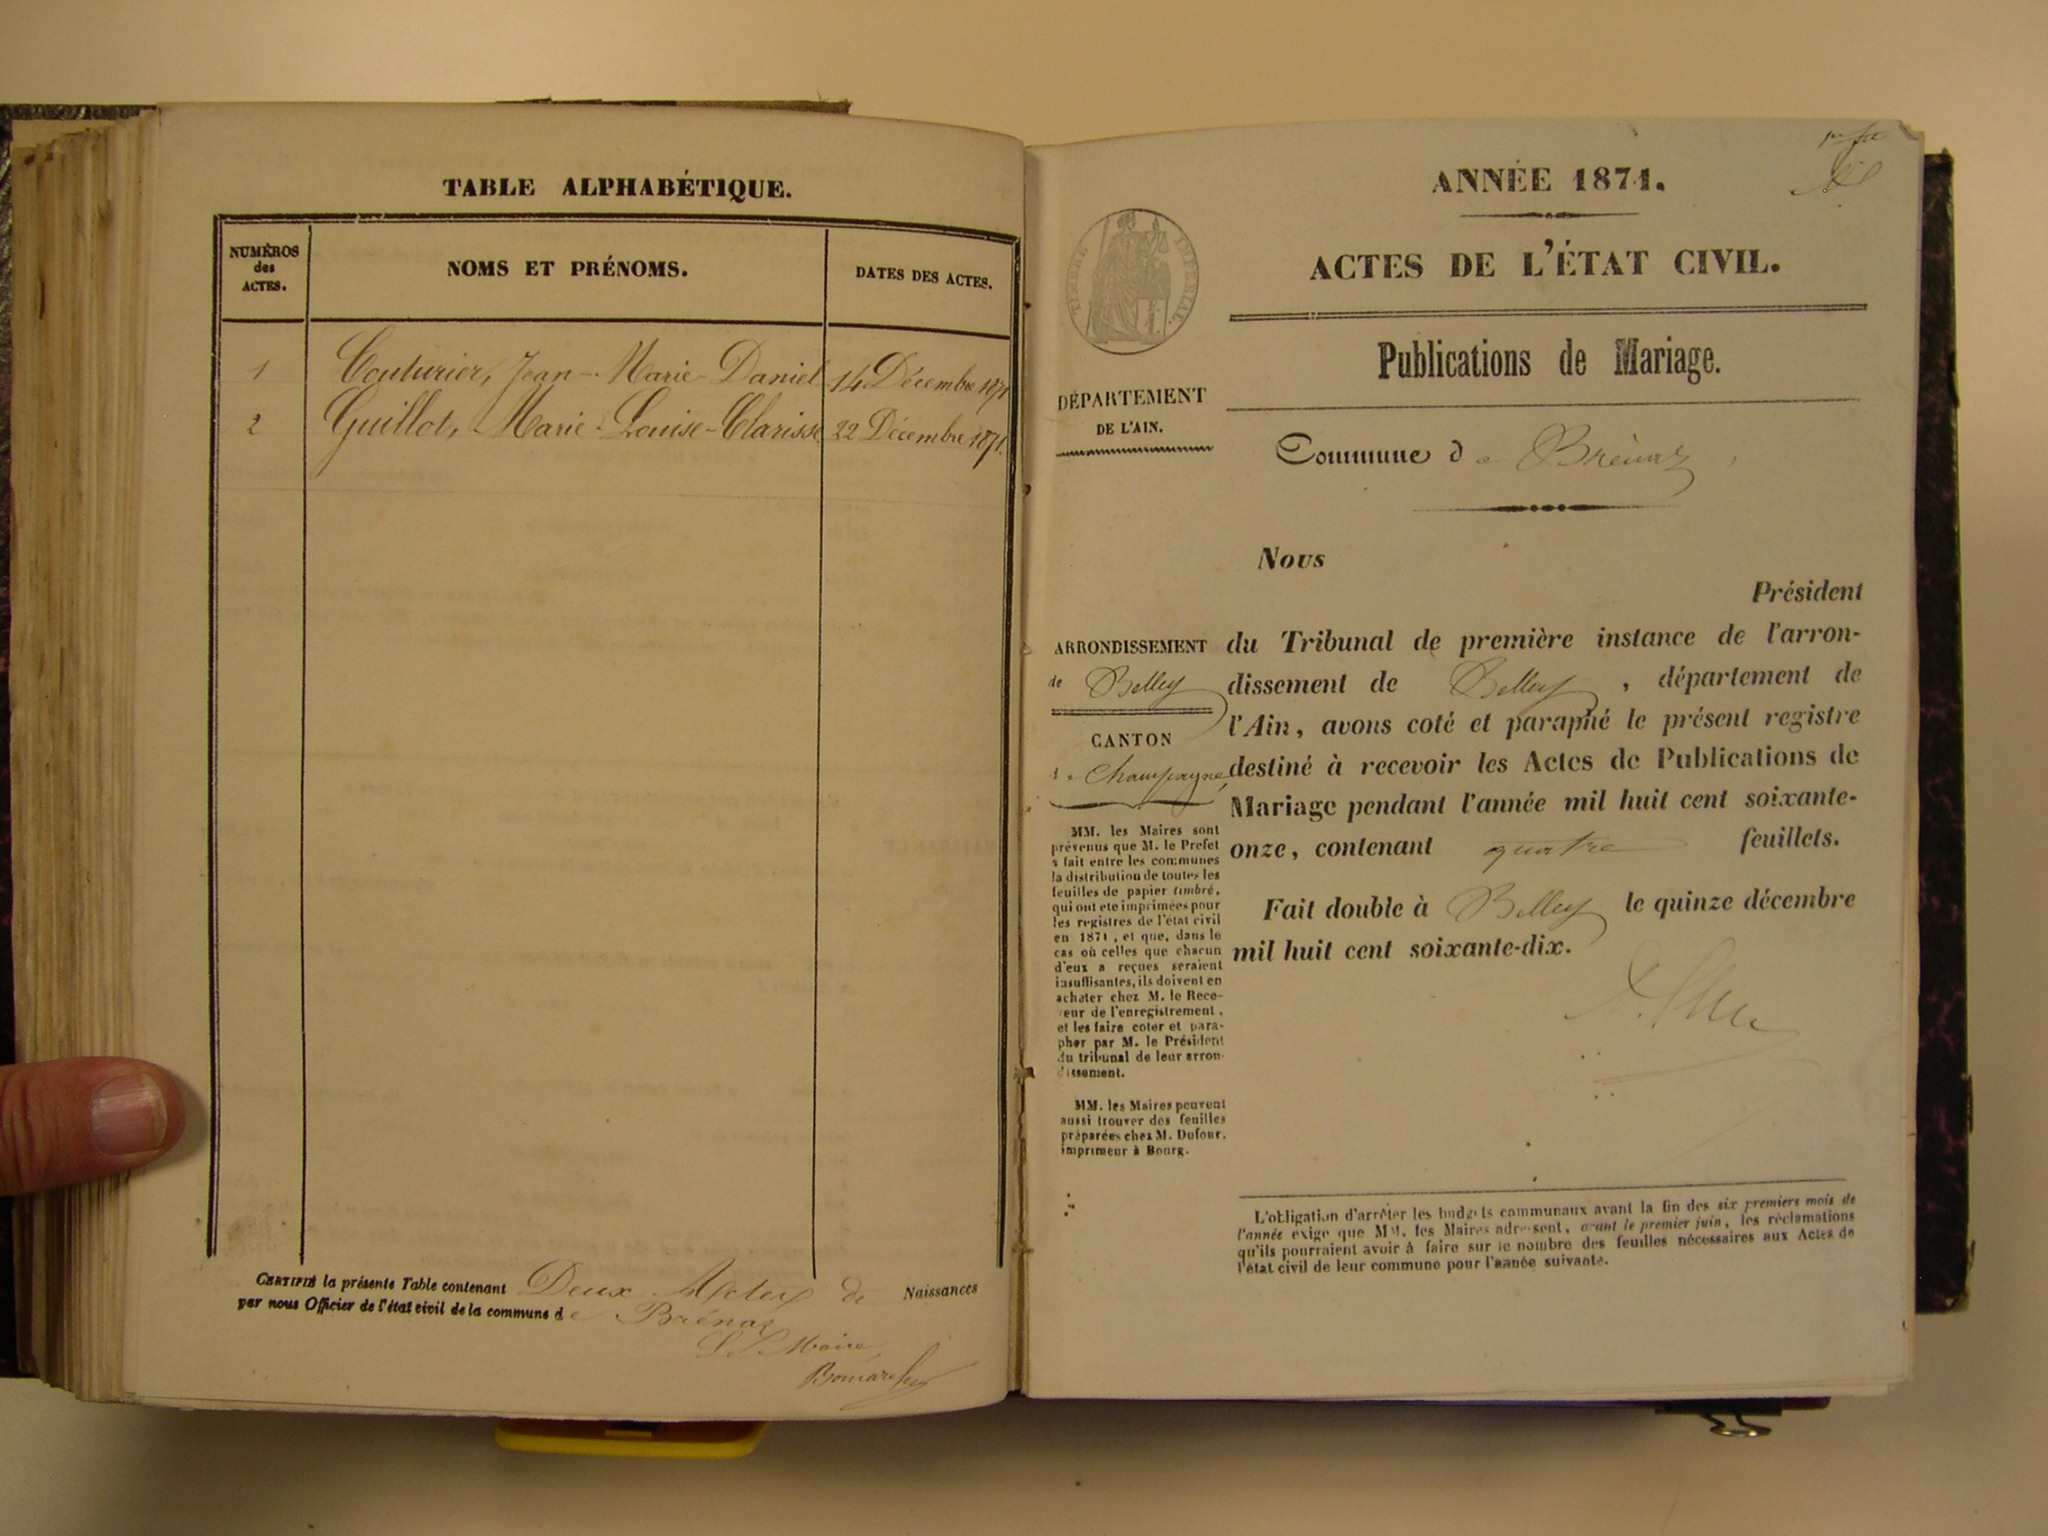 TABLE ALPHABÉTIQUE.
NUMÉROS
des
ACTES.
NOMS ET PRÉNOMS.
DATES DES ACTES.
1 Couturier, Jean-Marie-Daniel 14 Décembre 1871
2 Guillot, Marie-Louise-Clarisse 22 Décembre 1871.
CERTIFIÉ la présente Table contenant Deux Actes de Naissances
par nous Officier de l'état civil de la commune de Brénaz
Le Maire,
ANNÉE 1871.
ACTES DE L'ÉTAT CIVIL.
TIMBRE IMPERIAL.
Publications de Mariage.
DÉPARTEMENT
DE L'AIN.
Commune de Brénaz
Nous
Président
du Tribunal de première instance de l'arron-
dissement de Belley, département de
l'Ain, avons coté et paraphé le présent registre
destiné à recevoir les Actes de Publications de
Mariage pendant l'année mil huit cent soixante-
onze, contenant quatre feuillets.
Fait double à Belley le quinze décembre
mil huit cent soixante-dix.
ARRONDISSEMENT
de Belley
CANTON
de Champagne
MM. les Maires sont
prévenus que M. le Prefet
a fait entre les communes
la distribution de toutes les
feuilles de papier timbré,
qui ont ete imprimées pour
les registres de l'état civil
en 1871, et que, dans le
cas où celles que chacun
d'eux a reçues seraient
insuffisantes, ils doivent en
acheter chez M. le Rece-
veur de l'enregistrement,
et les faire coter et para-
pher par M. le Président
du tribunal de leur arron-
dissement.
MM. les Maires peuvent
aussi trouver des feuilles
préparées chez M. Dufour,
imprimeur à Bourg.
L'obligation d'arrêter les budgets communaux avant la fin des six premiers mois de
l'année exige que MM. les Maires adressent, avant le premier juin, les réclamations
qu'ils pourraient avoir à faire sur le nombre des feuilles nécessaires aux Actes de
l'état civil de leur commune pour l'année suivante.